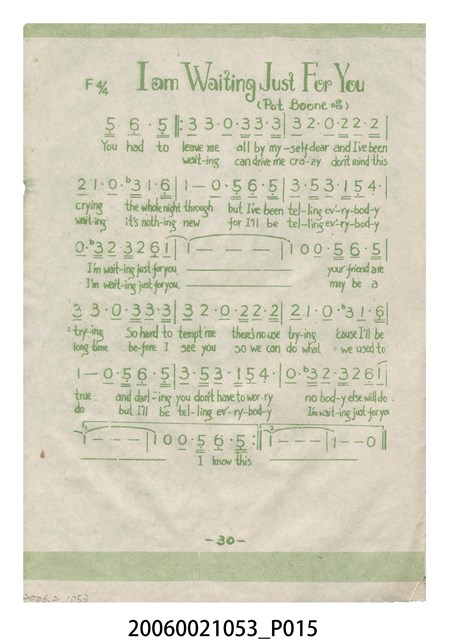 F 4/4 I am Waiting Just For You
(Pat Boone 唱)
5 6 · 5 |: 3 3 · 0 · 3 3 · 3 | 3 2 · 0 · 2 2 · 2 |
You had to leave me all by my-self dear and I've been
wait-ing can drive me cra-zy don't mind this
2 1 · 0 · b3 1 · 6 | 1 — 0 · 5 6 · 5 | 3 · 5 3 · 1 5 4 ·
crying the whole night through but I've been tel-ling ev'-ry-bod-y
wait-ing it's noth-ing new for I'll be tel-ling ev'-ry-bod-y
0 · b3 2 · 3 2 6 1 | 1 — — — | 1 0 0 · 5 6 · 5 |
I'm wait-ing just for you your friend are
I'm wait-ing just for you may be a
3 3 · 0 · 3 3 · 3 | 3 2 · 0 · 2 2 · 2 | 2 1 · 0 · b3 1 · 6 |
try-ing So hard to tempt me there's no use try-ing 'cause I'll be
long time be-fore I see you so we can do what we used to
1 — 0 · 5 6 · 5 | 3 · 5 3 · 1 5 4 · | 0 · b3 2 · 3 2 6 1 |
true and darl-ing you don't have to wor-ry no bod-y else will do .
do but I'll be tel-ling ev'-ry-bod-y I'm wait-ing just for you
1 — — — | 1 0 0 · 5 6 · 5 :|| 1 — — — | 1 — — 0 ||
I know this
-30-
2006.2.1053
20060021053_P015